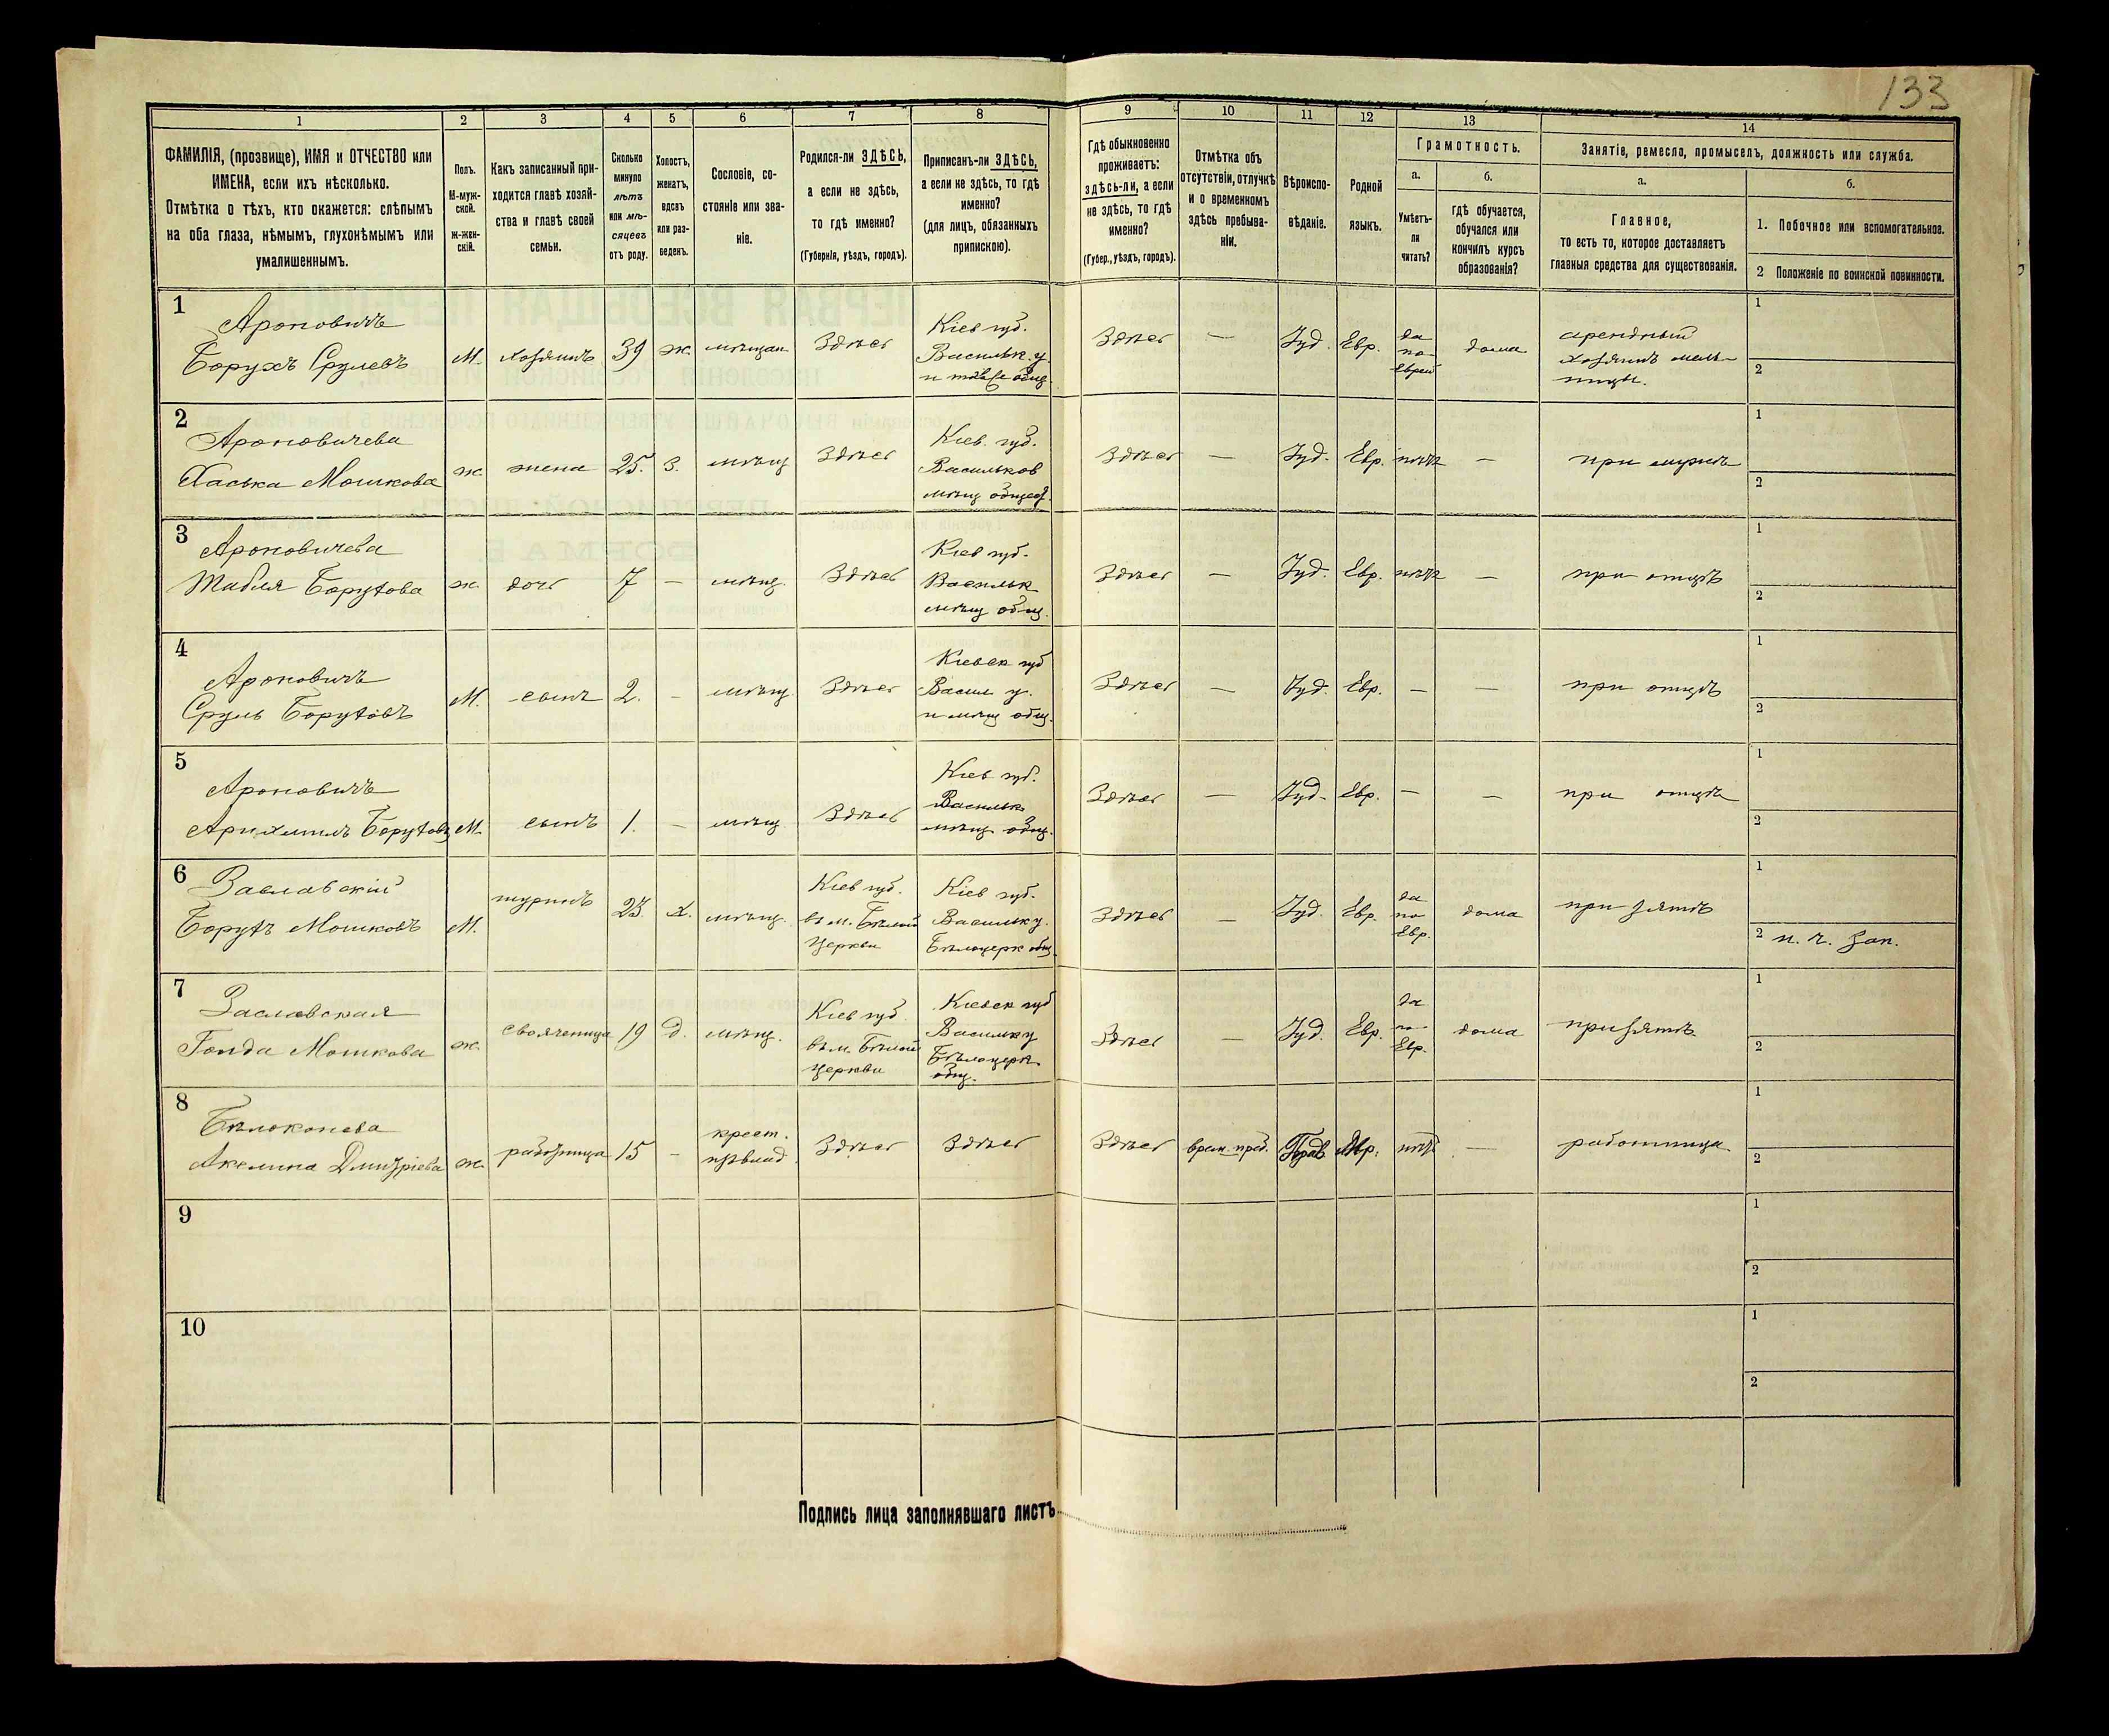 133
1 2 3 4 5 6 7 8 9 10 11 12 13 14
ФАМИЛІЯ, (прозвище), ИМЯ и ОТЧЕСТВО или
ИМЕНА, если ихъ нѣсколько.
Отмѣтка о тѣхъ, кто окажется: слѣпымъ
на оба глаза, нѣмымъ, глухонѣмымъ или
умалишеннымъ.
Полъ.
М-муж-
ской.
Ж-жен-
скій.
Какъ записанный при-
ходится главѣ хозяй-
ства и главѣ своей
семьи.
Сколько
минуло
лѣтъ
или мѣ-
сяцевъ
отъ роду.
Холостъ,
женатъ,
вдовъ
или раз-
веденъ.
Сословіе, со-
стояніе или зва-
ніе.
Родился-ли ЗДѢСЬ,
а если не здѣсь,
то гдѣ именно?
(Губернія, уѣздъ, городъ).
Приписанъ-ли ЗДѢСЬ,
а если не здѣсь, то гдѣ
именно?
(для лицъ, обязанныхъ
припискою).
Гдѣ обыкновенно
проживаетъ:
здѣсь-ли, а если
не здѣсь, то гдѣ
именно?
(Губер., уѣздъ, городъ).
Отмѣтка объ
отсутствіи, отлучкѣ
и о временномъ
здѣсь пребыва-
ніи.
Вѣроиспо-
вѣданіе.
Родной
языкъ.
Грамотность.
а.
Умѣетъ-
ли
читать?
б.
гдѣ обучается,
обучался или
кончилъ курсъ
образованія?
Занятіе, ремесло, промыселъ, должность или служба.
а.
Главное,
то есть то, которое доставляетъ
главныя средства для существованія.
б.
1. Побочное или вспомогательное.
2 Положеніе по воинской повинности.
1
Ароновичъ
Борухъ Срулевъ
М. хозяинъ 39 ж. мѣщан. Здѣсь
Кіев губ.
Васильк. у.
Здѣсь — Іуд. Евр.
да
по
Еврей
дома
арендный
хозяинъ мель-
ницы.
1
2
2
Ароновичева
Хаська Мошкова
ж жена 25. З. мѣщ Здѣсь
Кіев. губ.
Васильков
мѣщ общест.
Здѣсь — Іуд. Евр. нѣтъ — при мужѣ
1
2
3
Ароновичева
Борухова
ж. дочь 7 — мѣщ. Здѣсь
Кіев губ.
Васильк
мѣщ общ.
Здѣсь — Іуд. Евр. нѣтъ — при отцѣ
1
2
4
Ароновичъ
Сруль Боруховъ
М. сынъ 2. — мѣщ Здѣсь
Кіевск губ
Васил у.
и мѣщ общ.
Здѣсь — Іуд. Евр. — — при отцѣ
1
2
5
Ароновичъ
Боруховъ
М. сынъ 1. — мѣщ Здѣсь
Кіев губ.
Васильк
мѣщ общ.
Здѣсь — Іуд. Евр. — — при отцѣ
1
2
6
Заславскій
Борухъ Мошковъ
М. шуринъ 23. х. мѣщ.
Кіев губ.
въ м. Бѣлой
Церкви
Кіев губ.
Васильк у.
Бѣлоцерк общ.
Здѣсь — Іуд. Евр.
да
по
Евр.
дома при зятѣ
1
2 н. ч. зап.
7
Заславская
Мошкова
ж. свояченица 19 д. мѣщ.
Кіев губ
въ м. Бѣлой
Церкви
Кіевск губ
Васильк у
Бѣлоцерк.
общ.
Здѣсь — Іуд. Евр.
да
по
Евр.
дома при зятѣ
1
2
8
Бѣлоконева
Акелина Дмитріева
ж. работница 15 —
крест.
Здѣсь Здѣсь
Здѣсь врем. преб. Прав нѣтъ — работница
1
2
9
1
2
10
1
2
Подпись лица заполнявшаго листъ